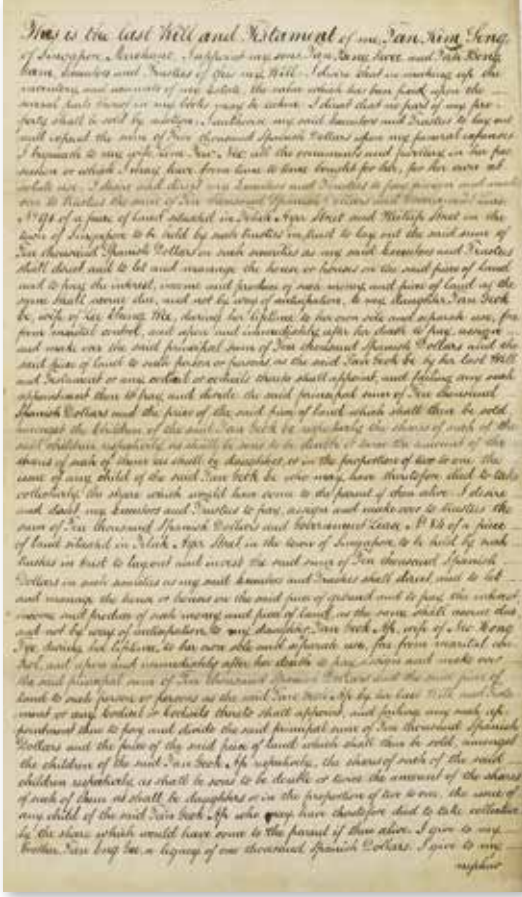 This is the last Will and Testament of me Tan Kim Seng
of Singapore Merchant. I appoint my sons Tan Beng Swee and Tan Beng
Executors and Trustees of this my Will. I desire that in making up the
inventory and accounts of my Estate, the value which has been put upon the
several parts thereof in my books may be taken. I direct that no part of my pro-
perty shall be sold by auction. I authorise my said Executors and Trustees to lay out
and expend the sum of Five thousand Spanish Dollars upon my funeral expenses
I bequeath to my wife all the ornaments and jewellery in her pos
session or which I may have from time to time bought for her, for her own ab
solute use. I desire and direct my Executors and Trustees to pay assign and make
over to trustees the sum of Ten thousand Spanish Dollars and Government Lease
of a piece of land situated in Telok Ayer Street and Philip Street in the
town of Singapore to be held by such trustees in trust to lay out the said sum of
Ten thousand Spanish Dollars in such securities as my said Executors and Trustees
shall direct and to let and manage the house or houses on the said piece of land
and to pay the interest, income and produce of such money and piece of land as the
same shall accrue due, and not by way of anticipation, to my daughter Tan Geok
be, wife of during her lifetime to her own sole and separate use, free
from marital control, and upon and immediately after her death to pay, assign
and make over the said principal sum of Ten thousand Spanish Dollars and the
said piece of land to such person or persons as the said Tan Geok be by her last Will
and Testament or any codicil or codicils thereto shall appoint, and failing any such
appointment then to pay and divide the said principal sum of Ten thousand
Spanish Dollars and the price of the said piece of land which shall then be sold,
amongst the Children of the said Tan Geok be respectively, the shares of such of the
said children respectively as shall be sons to be double or twice the amount of the
shares of such of them as shall be daughters, or in the proportion of two to one, the
issue of any child of the said Tan Geok be who may have theretofore died to take
collectively the share which would have come to the parent if then alive. I desire
and direct my Executors and Trustees to pay, assign and make over to trustees the
sum of Ten thousand Spanish Dollars and Government Lease of a piece
of land situated in Telok Ayer Street in the town of Singapore, to be held by such
trustees in trust to lay out and invest the said sum of Ten thousand Spanish
Dollars in such securities as my said Executors and Trustees shall direct, and to let
and manage the house or houses on the said piece of ground and to pay the interest
income and produce of such money and piece of land, as the same shall accrue due
and not by way of anticipation, to my daughter Tan Geok wife of
during her lifetime, to her own sole and separate use, free from marital con
trol, and upon and immediately after her death to pay assign and make over
the said principal sum of Ten thousand Spanish Dollars and the said piece of
land to such person or persons as the said Tan Geok by her last Will and Testa
ment or any Codicil or Codicils thereto shall appoint, and failing any such ap
pointment then to pay and divide the said principal sum of Ten thousand Spanish
Dollars and the price of the said piece of land which shall then be sold, amongst
the children of the said Tan Geok respectively, the shares of such of the said
children respectively as shall be sons to be double or twice the amount of the shares
of such of them as shall be daughters or in the proportion of two to one, the issue of
any child of the said Tan Geok who may have theretofore died to take collective
ly the share which would have come to the parent if then alive. I give to my
brother Tan a legacy of one thousand Spanish Dollars. I give to my
nephew